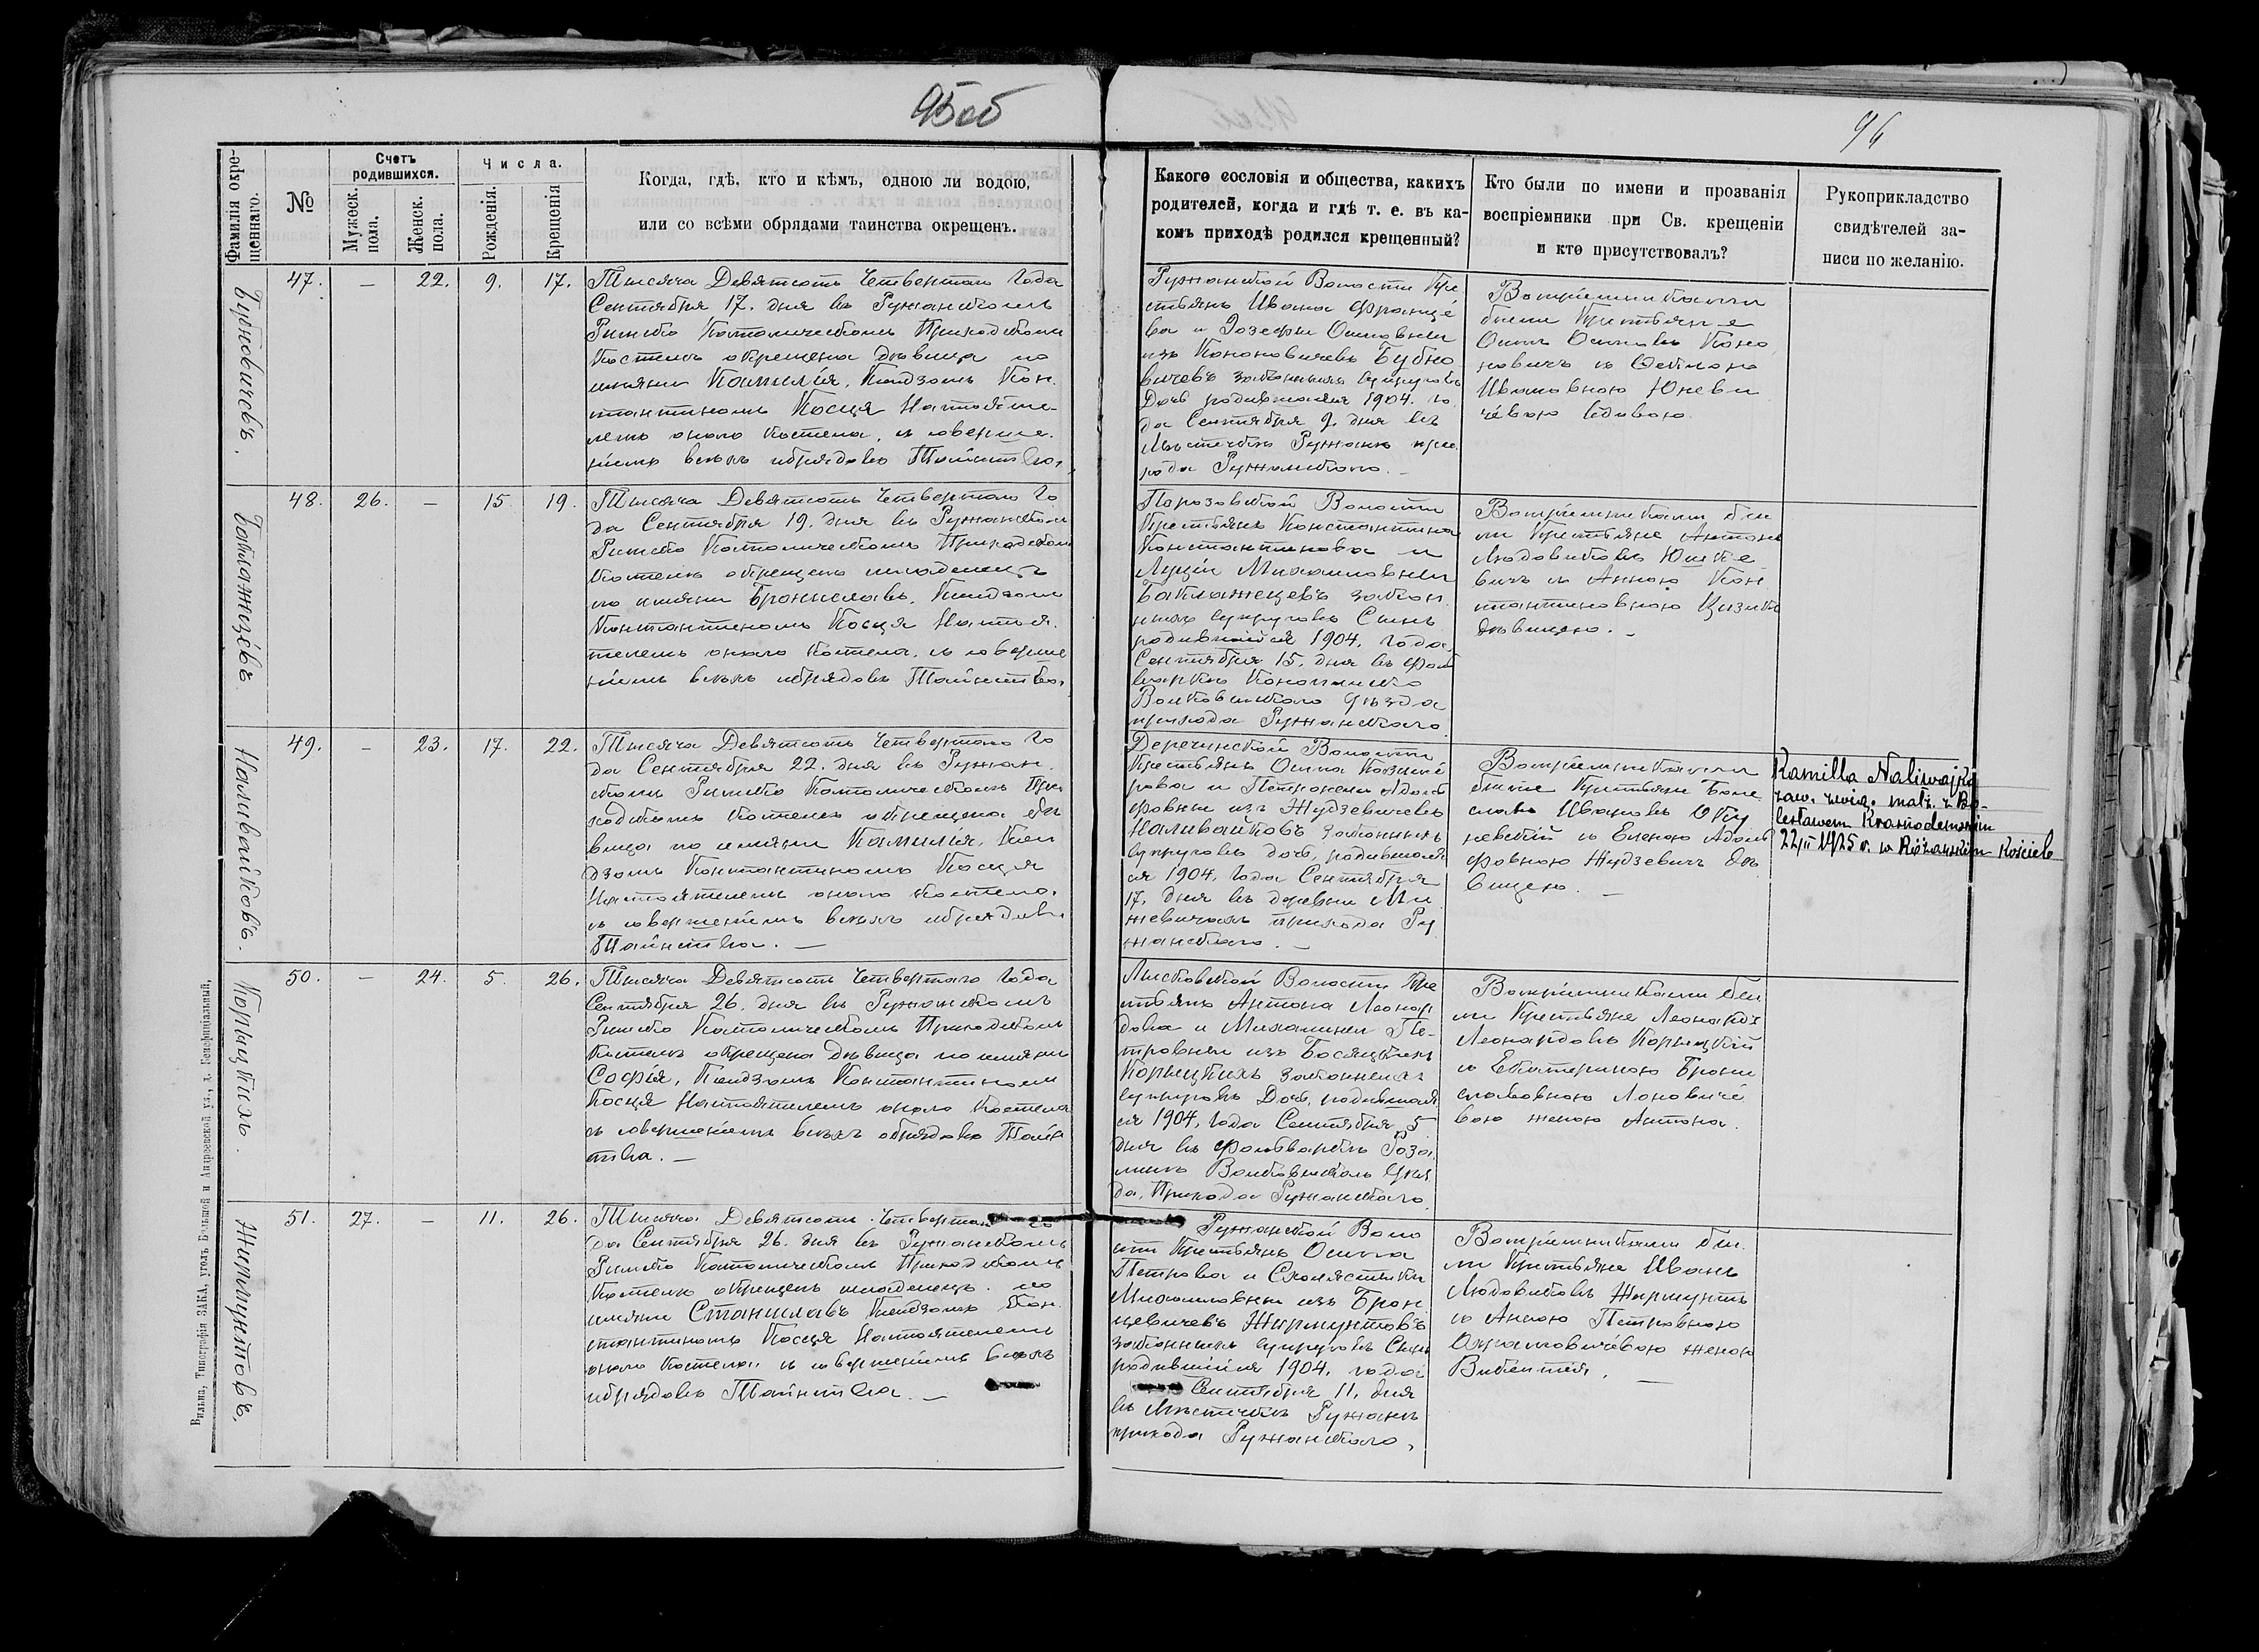 95 об
96
Фамилія окре-
щеннаго.
№
Счетъ
родившихся.
Мужеск.
пола.
Женск.
пола.
Числа.
Рожденія.
Крещенія
Когда, гдѣ, кто и кѣмъ, одною ли водою,
или со всѣми обрядами таинства окрещенъ.
Какого сословія и общества, какихъ
родителей, когда и гдѣ т. е. въ ка-
комъ приходѣ родился крещенный?
Кто были по имени и прозванія
воспріемники при Св. крещеніи
и кто присутствовалъ?
Рукоприкладство
свидѣтелей за-
писи по желанію.
Бубновичевъ.
47. — 22. 9. 17.
Тысяча Девятсотъ Четвертаго Года
Сентября 17. дня въ Ружанскомъ
Римско Католическомъ Приходскомъ
Костелѣ окрещена дѣвица по
имяни Камилія, Ксендзомъ Кон
стантиномъ Косця Настояте-
лемъ онаго Костела, съ соверше-
ніемъ всѣхъ обрядовъ Таинства.
Ружанской Волости Кре
стьянъ Ивана Францё
ва и Іозефы Осиповны
изъ Кононовичевъ Бубно
вичевъ законныхъ супруговъ
Дочь родившаяся 1904. го
да Сентября 9. дня въ
Мѣстечкѣ Ружанѣ при
хода Ружанскаго. —
Воспріемниками
были Крестьяне
Осипъ Осиповъ Коно
новичъ съ
Ивановною Юневи
чёвою вдовою.
48. 26. — 15 19.
Тысяча Девятсотъ Четвертаго Го
да Сентября 19. дня въ Ружанском
Римско Католическомъ Приходском
Костелѣ окрещенъ младенецъ
по имяни Брониславъ, Ксендзомъ
Константиномъ Косця Настоя-
телемъ онаго Костела, съ соверше
ніемъ всѣхъ обрядовъ Таинства.
Порозовской Волости
Крестьянъ Константина
Константинова и
Луціи Михаиловны
Баклажецевъ закон
ныхъ супруговъ Сынъ
родившійся 1904. Года
Сентября 15. дня въ Фоль
варкѣ
Волковыскаго Уѣзда
прихода Ружанскаго
Воспріемниками бы
ли Крестьяне Антонъ
Людвиковъ Юшке
вичъ съ Анною Кон
стантиновною
дѣвицею. —
Наливайковъ.
49. — 23. 17. 22.
Тысяча Девятсотъ Четвертаго Го
да Сентября 22. дня въ Ружан
скомъ Римско Католическомъ При
ходскомъ Костелѣ окрещена дѣ
вица по имяни Камилія, Ксен
дзомъ Константиномъ Косця
Настоятелемъ онаго Костела,
съ совершеніемъ всѣхъ обрядовъ
Таинства. —
Деречинской Волости
Крестьянъ Осипа Казимі
рова и Петронели Адоль
фовны изъ Жудзевичевъ
Наливайковъ законныхъ
супруговъ дочь, родившаяя
ся 1904. Года Сентября
17. дня въ деревни Ми
жевичахъ прихода Ру
жанскаго. —
Воспріемниками
были Крестьяне Боле
славъ Ивановъ
невскій съ Еленою Адоль
фовною Жудзевичъ дѣ
вицею. —
Kamilla Naliwajko
zaw. zwią. małż. z Bo-
lesławem Krasnodemskim
22/II 1925 r. w Różańskim Kościele
Корыцкихъ.
50. — 24. 5. 26.
Тысяча Девятсотъ Четвертаго Года
Сентября 26. дня въ Ружанскомъ
Римско Католическомъ Приходскомъ
Костелѣ окрещена дѣвица по имяни
Софія, Ксендзомъ Константиномъ
Косця Настоятелемъ онаго Костела
съ совершеніемъ всѣхъ обрядовъ Таин
ства. —
Лысковской Волости Кре
стьянъ Антона Леонар
дова и Михалины Пе-
тровны изъ Босяцкихъ
Корыцкихъ законныхъ
супруговъ Дочь, родившаяя
ся 1904. Года Сентября 5
дня въ Фольваркѣ Роза
линѣ Волковыскомъ Уѣз
да, Прихода Ружанскаго
Воспріемниками бы
ли Крестьяне Леонардъ
Леонардовъ Корыцкій
съ Екатериною Брони
славовною
вою женою Антона.
Жирмунтовъ.
51. 27. — 11. 26.
Тысяча Девятсотъ Четвертаго Го
да Сентября 26. дня въ Ружанскомъ
Римско Католическомъ Приходскомъ
Костелѣ окрещенъ младенецъ по
имяни Станиславъ Ксендзомъ Кон
стантиномъ Косця Настоятелемъ
онаго Костела, съ совершеніемъ всѣхъ
обрядовъ Таинства. —
Ружанской Воло
сти Крестьянъ Осипа
Петрова и Схолястыки
Михаиловны изъ Брон
цевичевъ Жирмунтовъ
законныхъ супруговъ Сынъ
родившійся 1904. года
Сентября 11. дня
въ Мѣстечкѣ Ружанѣ
прихода Ружанскаго,
Воспріемниками бы
ли Крестьяне Иванъ
Людвиковъ Жирмунтъ
съ Анною Петровною
женою
Викентія. —
Вильна, Типографія ЗАКА, уголъ Большой и Андреевской ул., д.